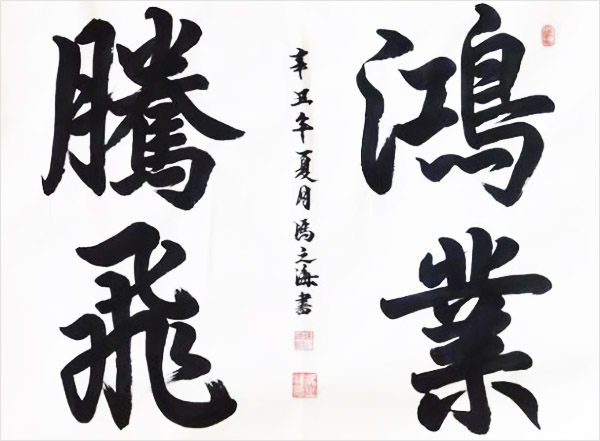 鴻業
騰飛
辛丑年夏月馮之海書